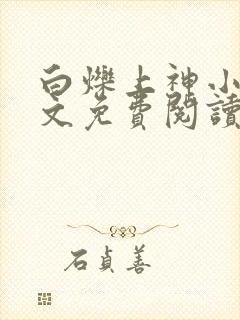 白爍上神小
文免費閱讀
石貞善